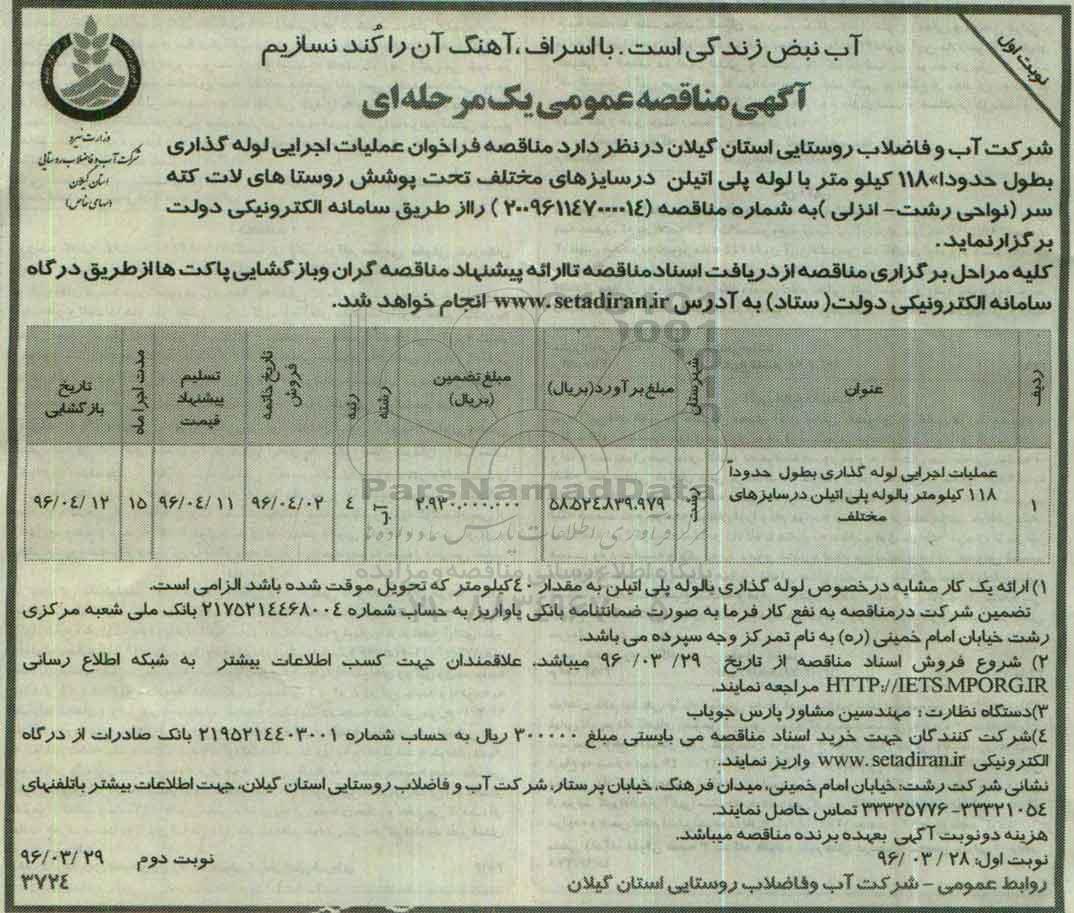 نوبت اول
آب نبض زندگی است. با اسراف، آهنگ آن را کُند نسازیم
آگهی مناقصه عمومی یک مرحله ای
وزارت نیرو
شرکت آب و فاضلاب روستایی
استان گیلان
(سهامی خاص)
شرکت آب و فاضلاب روستایی استان گیلان درنظر دارد مناقصه فراخوان عملیات اجرایی لوله گذاری
بطول حدودا» ۱۱۸ کیلو متر با لوله پلی اتیلن درسایزهای مختلف تحت پوشش روستا های لات کته
سر (نواحی رشت- انزلی )به شماره مناقصه (۲۰۰۹۶۱۱۴۷۰۰۰۰۱۴ ) رااز طریق سامانه الکترونیکی دولت
برگزارنماید.
کلیه مراحل برگزاری مناقصه ازدریافت اسنادمناقصه تاارائه پیشنهاد مناقصه گران وبازگشایی پاکت هاازطریق درگاه
سامانه الکترونیکی دولت( ستاد) به آدرس www.setadiran.ir انجام خواهد شد.
ردیف	عنوان	شهرستان	مبلغ برآورد(بریال)	مبلغ تضمین (بریال)	رشته	رتبه	تاریخ خاتمه فروش	تسلیم پیشنهاد قیمت	مدت اجرا ماه	تاریخ بازگشایی
۱	عملیات اجرایی لوله گذاری بطول حدوداً ۱۱۸ کیلومتر بالوله پلی اتیلن درسایزهای مختلف	رشت	۵۸.۵۲۴.۸۳۹.۹۷۹	۲.۹۳۰.۰۰۰.۰۰۰	آب	۴	۹۶/۰۴/۰۲	۹۶/۰۴/ ۱۱	۱۵	۹۶/۰۴/ ۱۲
ParsNamadData
مرکز فرآوری اطلاعات پارس نماد داده ها
پایگاه اطلاع رسانی مناقصه و مزایده
۱) ارائه یک کار مشابه درخصوص لوله گذاری بالوله پلی اتیلن به مقدار ۴۰کیلومتر که تحویل موقت شده باشد الزامی است.
تضمین شرکت درمناقصه به نفع کار فرما به صورت ضمانتنامه بانکی یاواریز به حساب شماره ۲۱۷۵۲۱۴۴۶۸۰۰۴ بانک ملی شعبه مرکزی
رشت خیابان امام خمینی (ره) به نام تمرکز وجه سپرده می باشد.
۲) شروع فروش اسناد مناقصه از تاریخ ۲۹/ ۰۳/ ۹۶ میباشد. علاقمندان جهت کسب اطلاعات بیشتر به شبکه اطلاع رسانی
HTTP://IETS.MPORG.IR مراجعه نمایند.
۳)دستگاه نظارت : مهندسین مشاور پارس جویاب
۴)شرکت کنندگان جهت خرید اسناد مناقصه می بایستی مبلغ ۳۰۰۰۰۰ ریال به حساب شماره ۲۱۹۵۲۱۴۴۰۳۰۰۱ بانک صادرات از درگاه
الکترونیکی www.setadiran.ir واریز نمایند.
نشانی شرکت رشت: خیابان امام خمینی، میدان فرهنگ، خیابان پرستار، شرکت آب و فاضلاب روستایی استان گیلان، جهت اطلاعات بیشتر باتلفنهای
۳۳۳۲۱۰۵۴- ۳۳۳۲۵۷۷۶ تماس حاصل نمایند.
هزینه دونوبت آگهی بعهده برنده مناقصه میباشد.
نوبت اول: ۲۸ / ۰۳ / ۹۶	نوبت دوم ۹۶/۰۳/ ۲۹
روابط عمومی - شرکت آب وفاضلاب روستایی استان گیلان	۳۷۲۴